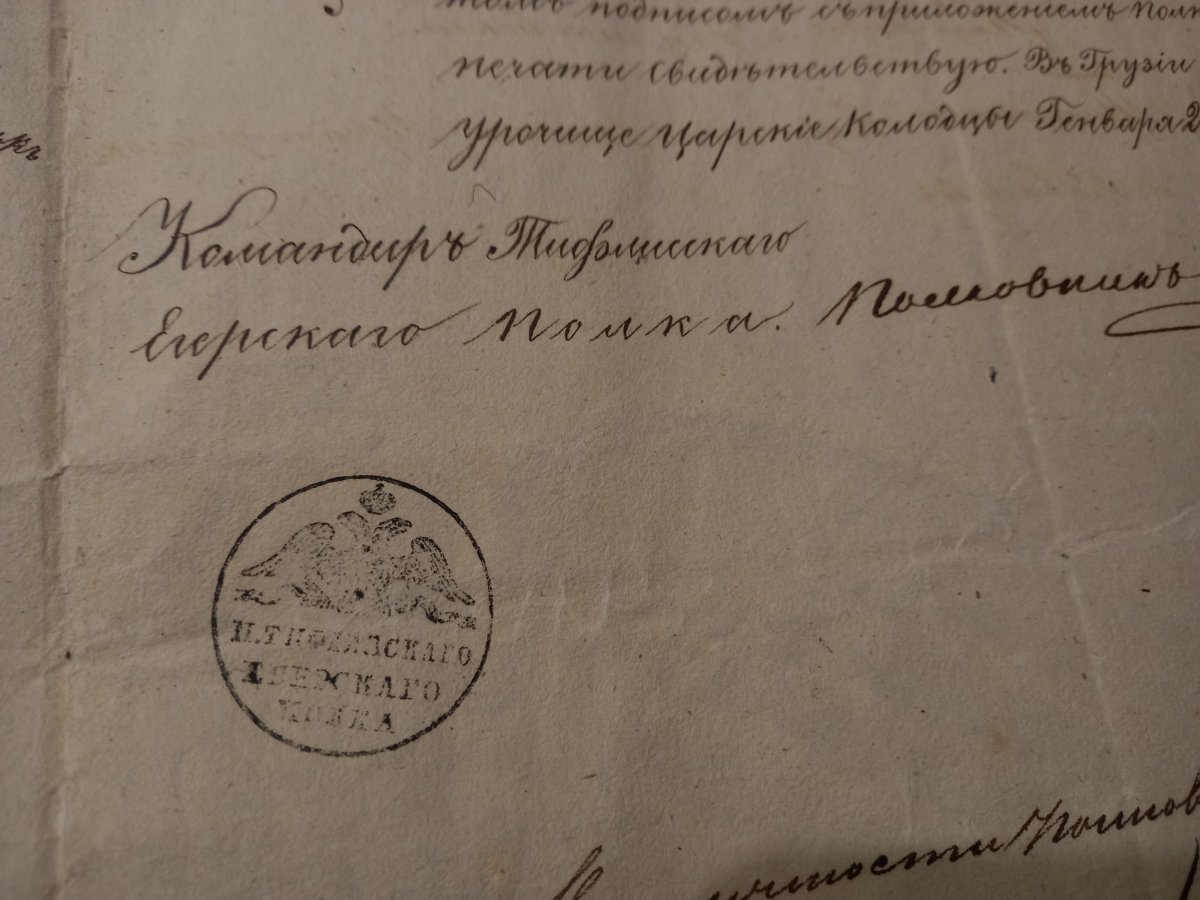 подписомъ съ приложениемъ
печати свидѣтельствую. Въ Грузіи
урочище Царскіе Колодцы Генваря 2
Командиръ Тифлисскаго
Егерскаго Полка. Полковникъ
ТИФЛИЗСКАГО
ЕГЕРСКАГО
ПОЛКА